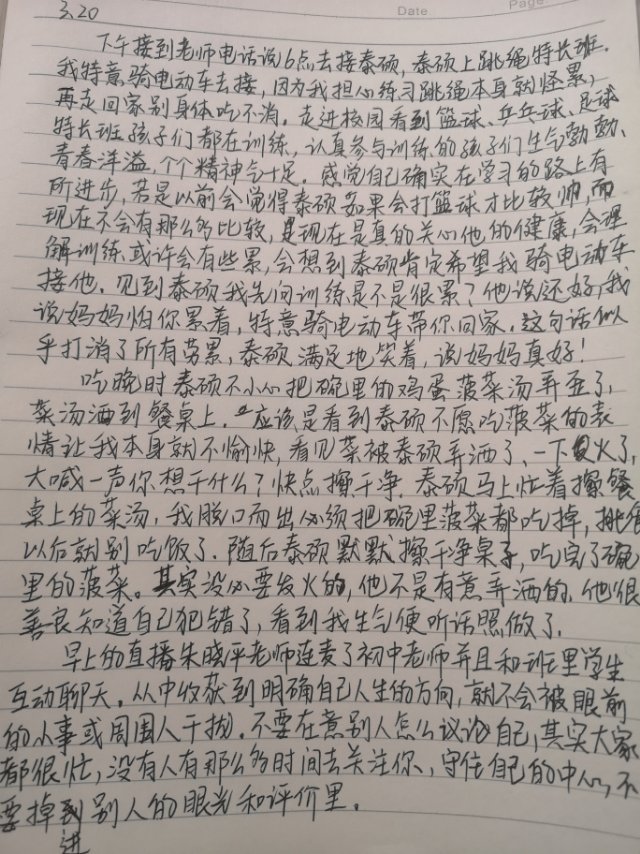 3.20
Date.
Page.
下午接到老师电话说6点去接泰硕,泰硕上跳绳特长班.
我特意骑电动车去接,因为我担心练习跳绳本身就怪累,
再走回家别身体吃不消。走进校园看到篮球、乒乓球、足球
特长班孩子们都在训练,认真参与训练的孩子们生气勃勃、
青春洋溢,个个精神气十足。感觉自己确实在学习的路上有
所进步,若是以前会觉得泰硕如果会打篮球才比较帅,而
现在不会有那么多比较,现在是真的关心他的健康,会理
解训练或许会有些累,会想到泰硕肯定希望我骑电动车
接他。见到泰硕我先问训练是不是很累?他说还好,我
说妈妈怕你累着,特意骑电动车带你回家。这句话似
乎打消了所有劳累,泰硕满足地笑着,说妈妈真好!
吃晚时泰硕不小心把碗里的鸡蛋菠菜汤弄歪了,
菜汤洒到餐桌上。应该是看到泰硕不愿吃菠菜的表
情让我本身就不愉快,看见菜被泰硕弄洒了、一下发火了,
大喊一声你想干什么?快点擦干净.泰硕马上忙着擦餐
桌上的菜汤,我脱口而出必须把碗里菠菜都吃掉,挑食
以后就别吃饭了.随后泰硕默默擦干净桌子,吃完了碗
里的菠菜。其实没必要发火的,他不是有意弄洒的.他很
善良知道自己犯错了,看到我生气便听话照做了.
早上的直播朱晓平老师连麦了初中老师并且和班里学生
互动聊天。从中收获到明确自己人生的方向,就不会被眼前
的小事或周围人干扰.不要在意别人怎么议论自己,其实大家
都很忙,没有人有那么多时间去关注你、守住自己的中心,不
要掉到别人的眼光和评价里。
进